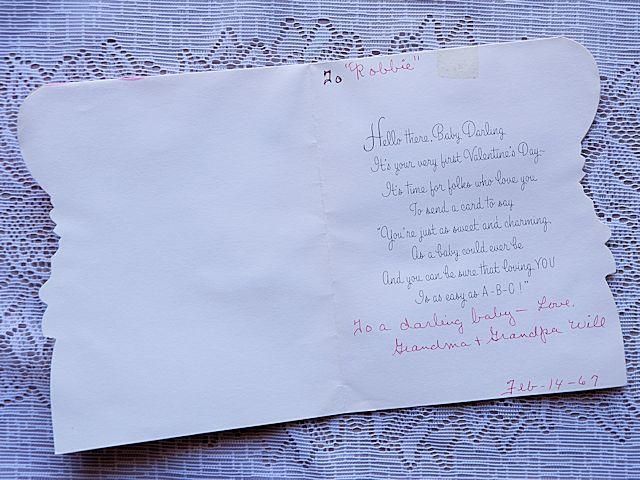 To "Robbie"
Hello there, Baby Darling
It's your very first Valentine's Day-
It's time for folks who love you
To send a card to say
"You're just as sweet and charming,
As a baby could ever be
And you can be sure that loving YOU
Is as easy as A-B-C!"
To a darling baby - Love,
Grandma + Grandpa Will
Feb-14-67